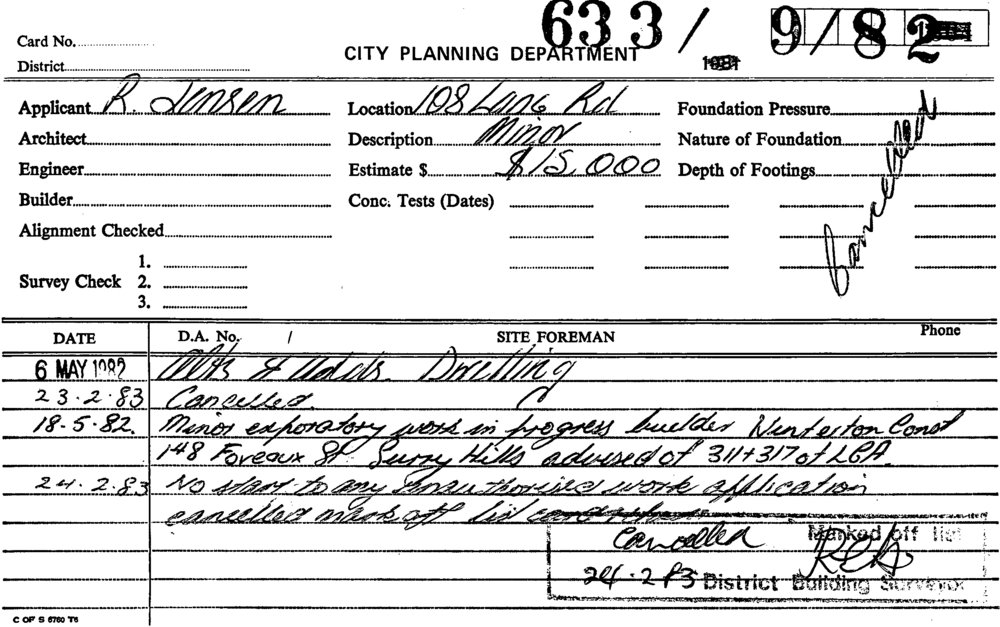 633/ 9/82
Card No.
CITY PLANNING DEPARTMENT 1981
District
Applicant R. Jensen Location 108 Lang Rd Foundation Pressure
Architect Description Minor Nature of Foundation
Engineer Estimate $ $15,000 Depth of Footings
Cancelled
Builder Conc. Tests (Dates)
Alignment Checked
1.
Survey Check 2.
3.
DATE D.A. No. / SITE FOREMAN Phone
6 MAY 1982 Alts & Adds. Dwelling
23.2.83 Cancelled.
18.5.82. Minor exporatory work in progress builder Winterton Const
148 Foveaux St Surry Hills advised of 311+317 of LGA.
24.2.83 No start to any unauthorised work application
cancelled mark off list
Cancelled Marked off list
24.2.83 District Building Surveyor
C OF S 6760 T6